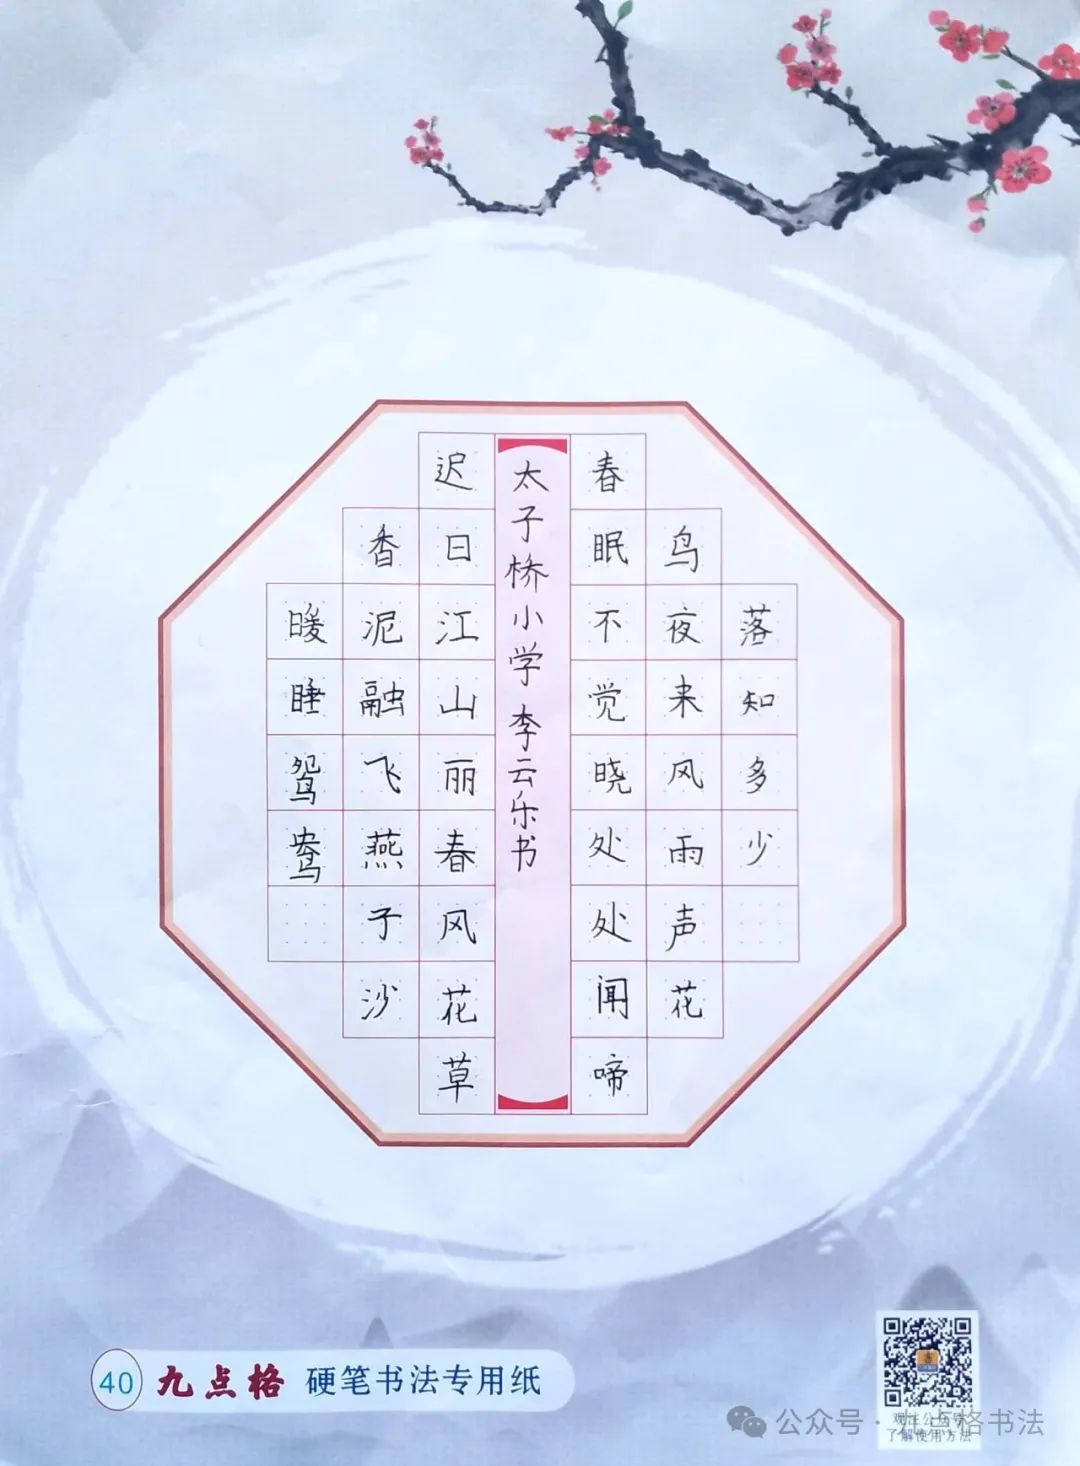 春眠不觉晓处处闻啼
鸟夜来风雨声花
落知多少
太子桥小学李云乐书
迟日江山丽春风花草
香泥融飞燕子沙
暖睡鸳鸯
40 九点格 硬笔书法专用纸
公众号
了解使用方法
公众号·九点格书法